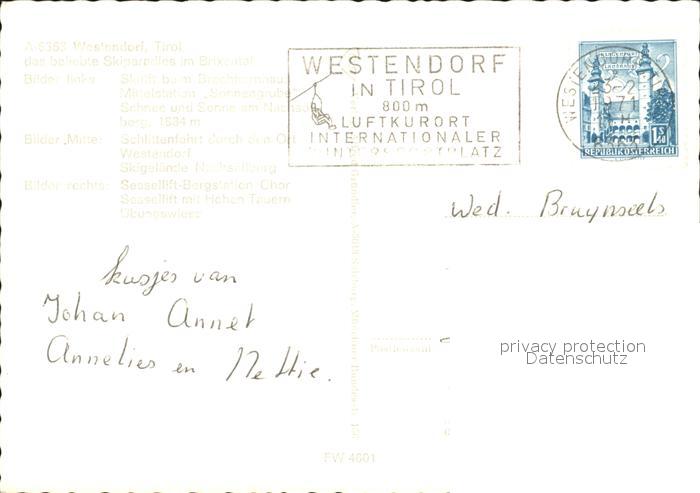 A-6363 Westendorf, Tirol
das beliebte Skiparadies im Brixental
Bilder links: Skilift beim Brechhornhaus
Mittelstation „Sonnengrube“
Schnee und Sonne am Nachsöll-
berg, 1634 m
Bilder Mitte: Schlittenfahrt durch den Ort
Westendorf
Skigelände Nachsöllberg
Bilder rechts: Sessellift-Bergstation Chor
Sessellift mit Hohen Tauern
Übungswiese
WESTENDORF
IN TIROL
800 m
LUFTKURORT
INTERNATIONALER
WINTERSPORTPLATZ
WESTENDORF
23-2
1971
1.50
REPUBLIK ÖSTERREICH
Wed. Bruynseels
kusjes van
Johan Annet
Annelies en Nettie.
Postkennzahl
privacy protection
Datenschutz
FW 4601